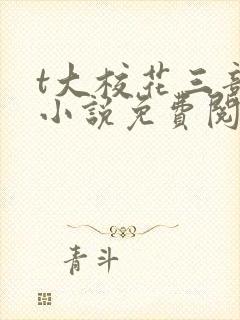 t大校花三部
小說免費閱
青斗